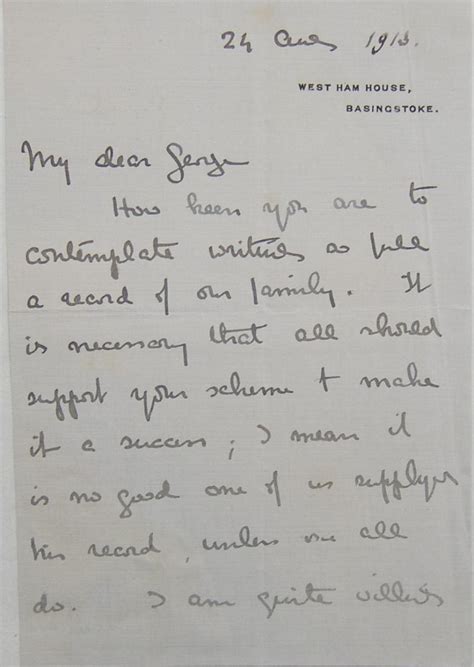 24 Aug 1913.
WEST HAM HOUSE,
BASINGSTOKE.
My dear George
How keen you are to
contemplate writing so full
a record of our family. It
is necessary that all should
support your scheme & make
it a success; I mean it
is no good one of us supplying
his record, unless we all
do. I am quite willing